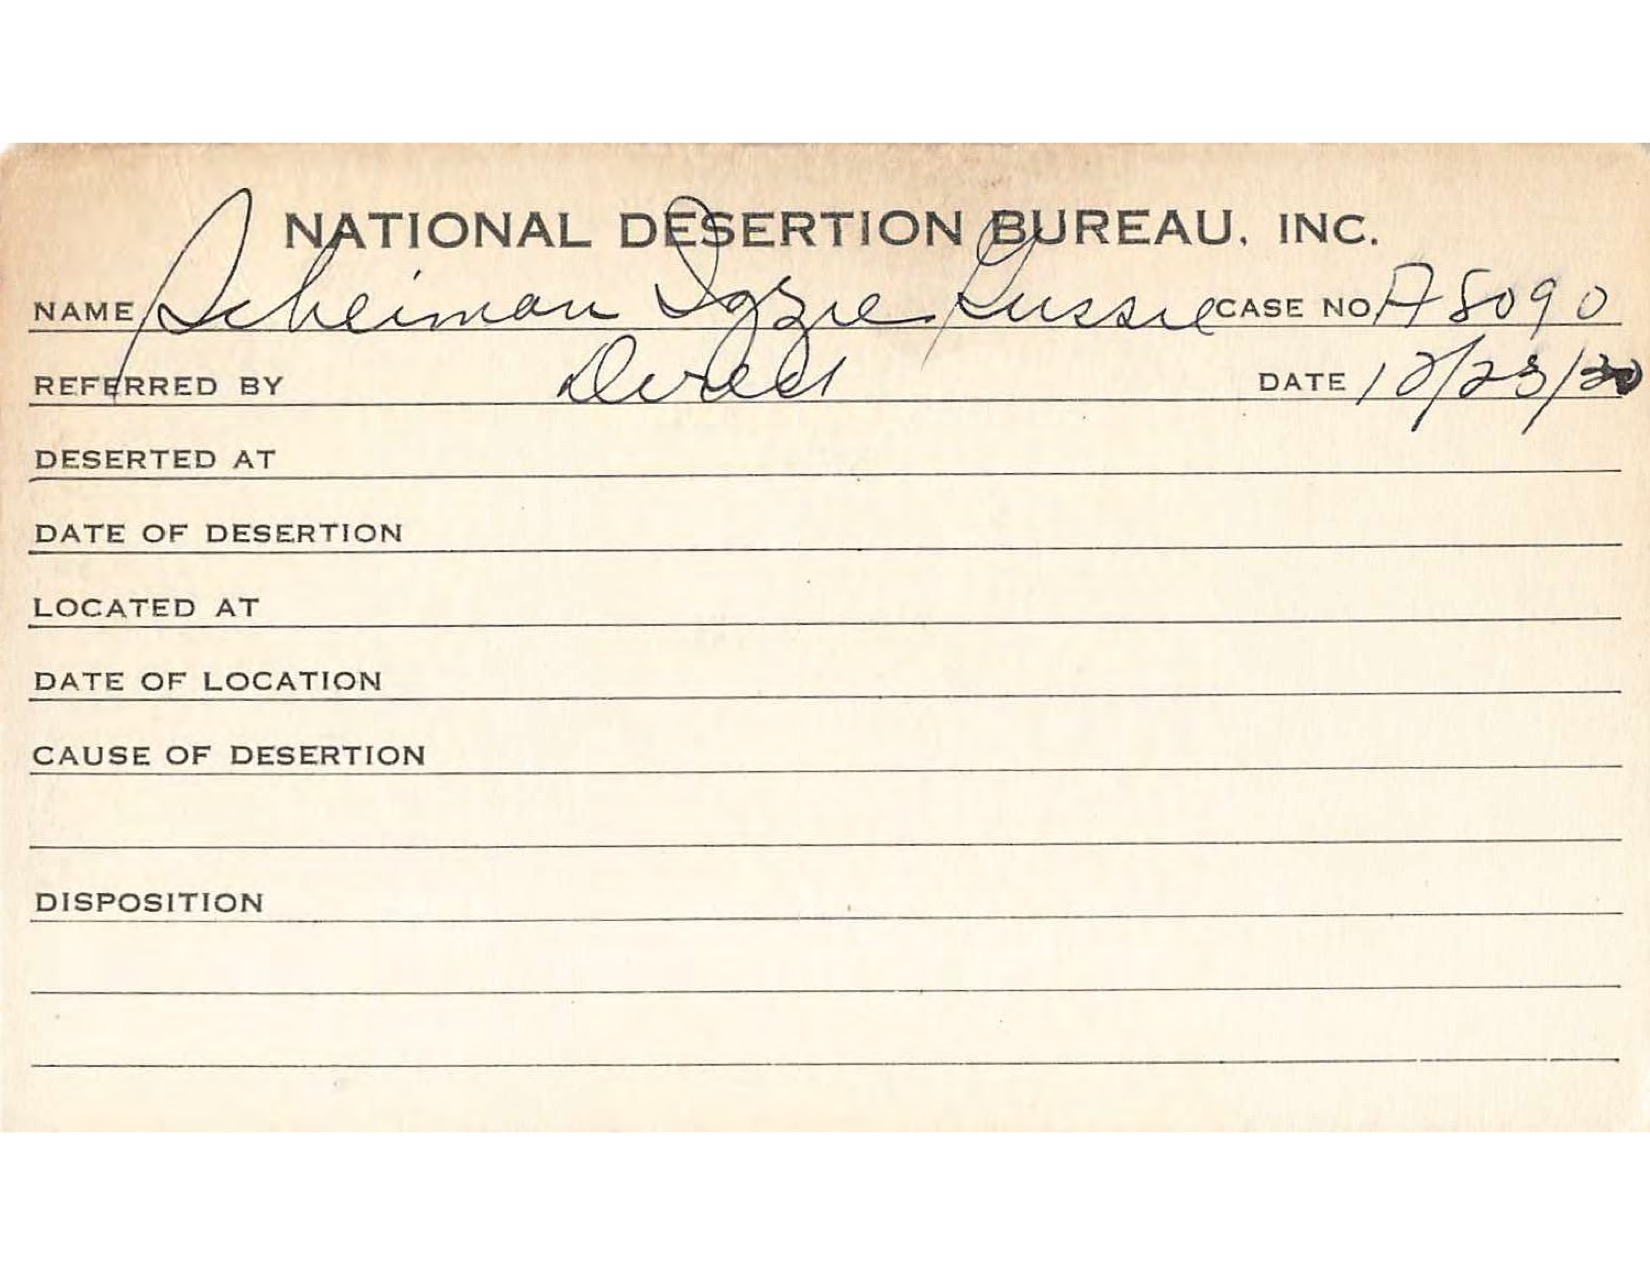 NATIONAL DESERTION BUREAU, INC.
NAME Scheiman Izzie Gussie CASE NO. A8090
REFERRED BY Direct DATE 12/23/30
DESERTED AT
DATE OF DESERTION
LOCATED AT
DATE OF LOCATION
CAUSE OF DESERTION
DISPOSITION